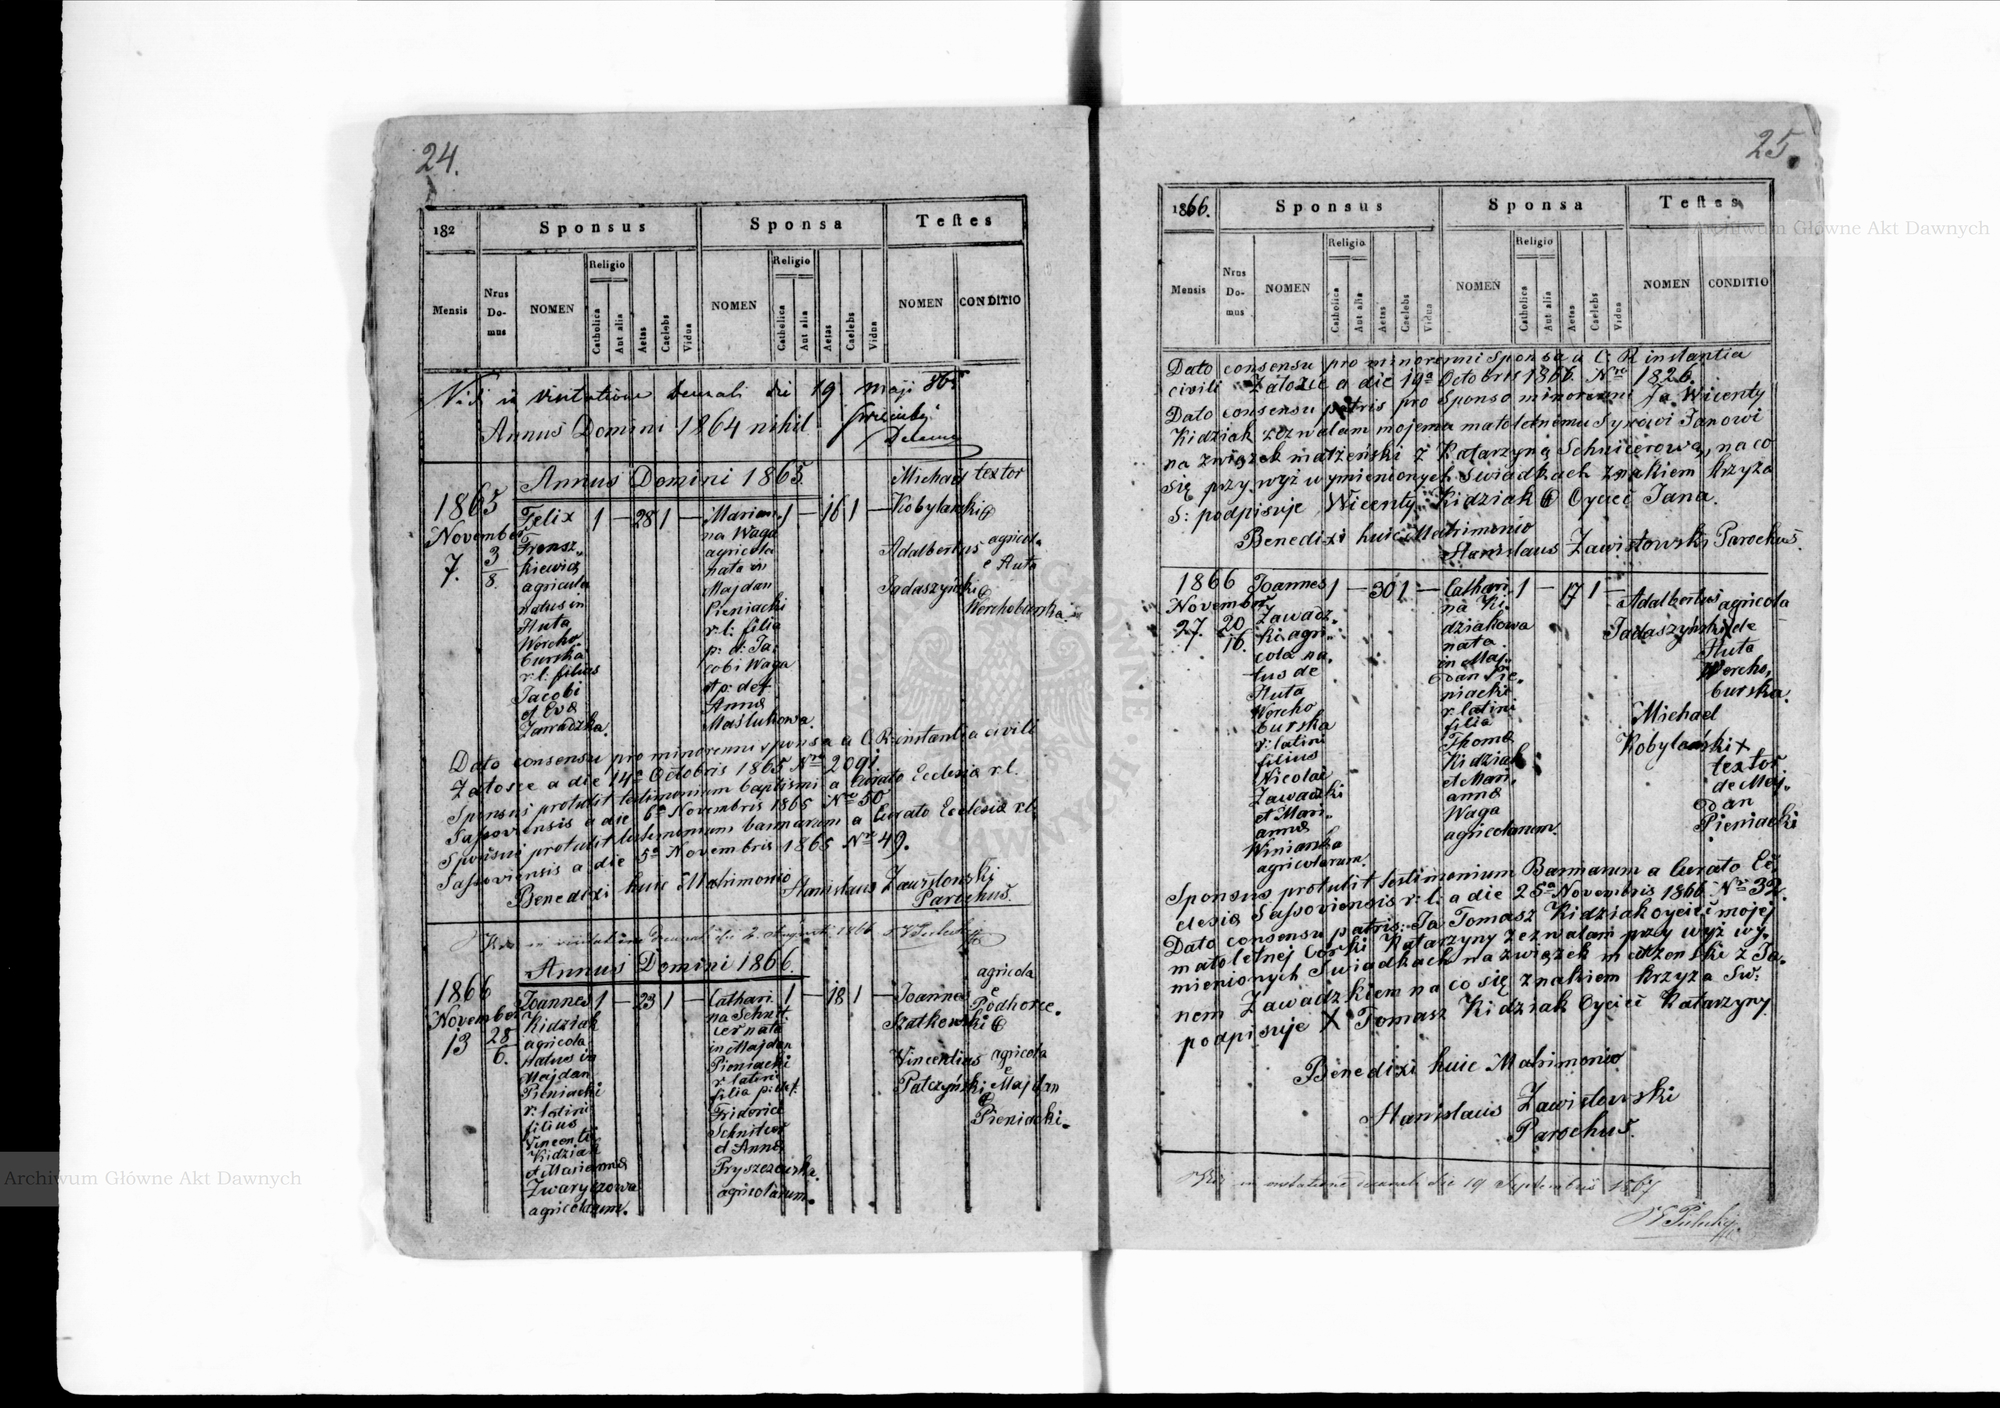 24.
182
Sponsus
Sponsa
Testes
Mensis
Nrus Do- mus
NOMEN
Religio
Catholica
Aut alia
Aetas
Caelebs
Vidua
NOMEN
Religio
Catholica
Aut alia
Aetas
Caelebs
Vidua
NOMEN
CONDITIO
in visitatione die 19 maji 865
Annus Domini 1864 nihil
Annus Domini 1865.
1865
November
7.
3
8.
Felix
Fransz„
kiewicz
agricola
natus in
Huta
Wercho„
burska
r: l: filius
Jacobi
et Eva
Zawadzka.
1 — 28 1 —
Marian„
na Waga
agricola
nata in
Majdan
Pieniacki
r: l: filia
p: d: Ja„
cobi Waga
et p: def.
Anna
Maslukowa.
1 — 16 1 —
Michael textor
Kobylanski
Adalbertus agricol.
e Huta
Tadaszyński
Werchoburska.
Dato consensu pro minorenni sponsa a C. R. instantia civili
Zalosce a die 14a Octobris 1865 Nro 2091.
Sponsus protulit testimonium baptismi a Curato Ecclesia r. l.
Sassoviensis a die 6a Novembris 1865 Nro 50
Sponsus protulit testimonium bannarum a Curato Ecclesia r. l.
Sassoviensis a die 5a Novembris 1865 Nro 49.
Benedixi huic Matrimonio Stanislaus Zawistowski
Parochus.
in visitatione die 2. Augusti 1866
Annus Domini 1866.
1866
November
13
28
6.
Joannes
Kidziak
agricola
natus in
Majdan
Pieniacki
r: latini
filius
Vincenti
Kidziak
et Marianna
Zwaryczowa
agricolarum.
1 — 23 1 —
Cathari„
na Schnit„
cer nata
in Majdan
Pieniacki
r: latini
filia p: def.
Friderici
Schnitcer
et Anna
Pryszczewska.
agricolarum.
1 — 18 1 —
Joannes
Szatkowski
agricola
e
Podhorce.
Vincentius agricola
Patczyński e Majdan
Pieniacki.
25.
1866.
Sponsus
Sponsa
Testes
Mensis
Nrus Do- mus
NOMEN
Religio
Catholica
Aut alia
Aetas
Caelebs
Vidua
NOMEN
Religio
Catholica
Aut alia
Aetas
Caelebs
Vidua
NOMEN
CONDITIO
Dato consensu pro minorenni Sponsa a C: R instantia
civili Zalosce a die 19a Octobris 1866. Nro 1826.
Dato consensu patris pro Sponso minorenni Ja Wicenty
Kidziak zezwalam mojemu małoletnimu Synowi Janowi
na związek małżeński z Katarzyną Schnicerową, na co
się przy wyż wymienionych Swiadkach znakiem krzyża
S: podpisuje Wicenty Kidziak Oyciec Jana.
Benedixi huic Matrimonio
Stanislaus Zawistowski Parochus.
1866
November
27.
20
16.
Joannes
Zawadz„
ki agri„
cola na„
tus de
Huta
Wercho
burska
r: latini
filius
Nicolai
Zawadzki
et Mari„
anna
Winiarska
agricolarum.
1 — 30 1 —
Cathari„
na Ki„
dziakowa
nata
in Maj„
dan Pie„
niacki
r. latini
filia
Thoma
Kidziak
et Mari„
anna
Waga
agricolarum.
1 — 17 1 —
Adalbertus agricola
Tadaszyński de
Huta
Wercho„
burska.
Michael
Kobylański x
textor
de Maj„
dan
Pieniacki
Sponsus protulit testimonium Bannarum a Curato Ec„
clesia Sassoviensis r: l: a die 25a Novembris 1866 Nro 32.
Dato consensu patris: Ja Tomasz Kidziak oyciec mojej
małoletnej Córki Katarzyny zezwalam przy wyż wy„
mienionych Swiadkach na związek małżonski z Ja„
nem Zawadzkiem na co się znakiem krzyża Sw:
podpisuje X Tomasz Kidziak Oyciec Katarzyny.
Benedixi huic Matrimonio
Stanislaus Zawistowski
Parochus.
in visitatione die 19 Septembris 1867
Archiwum Główne Akt Dawnych
Archiwum Główne Akt Dawnych